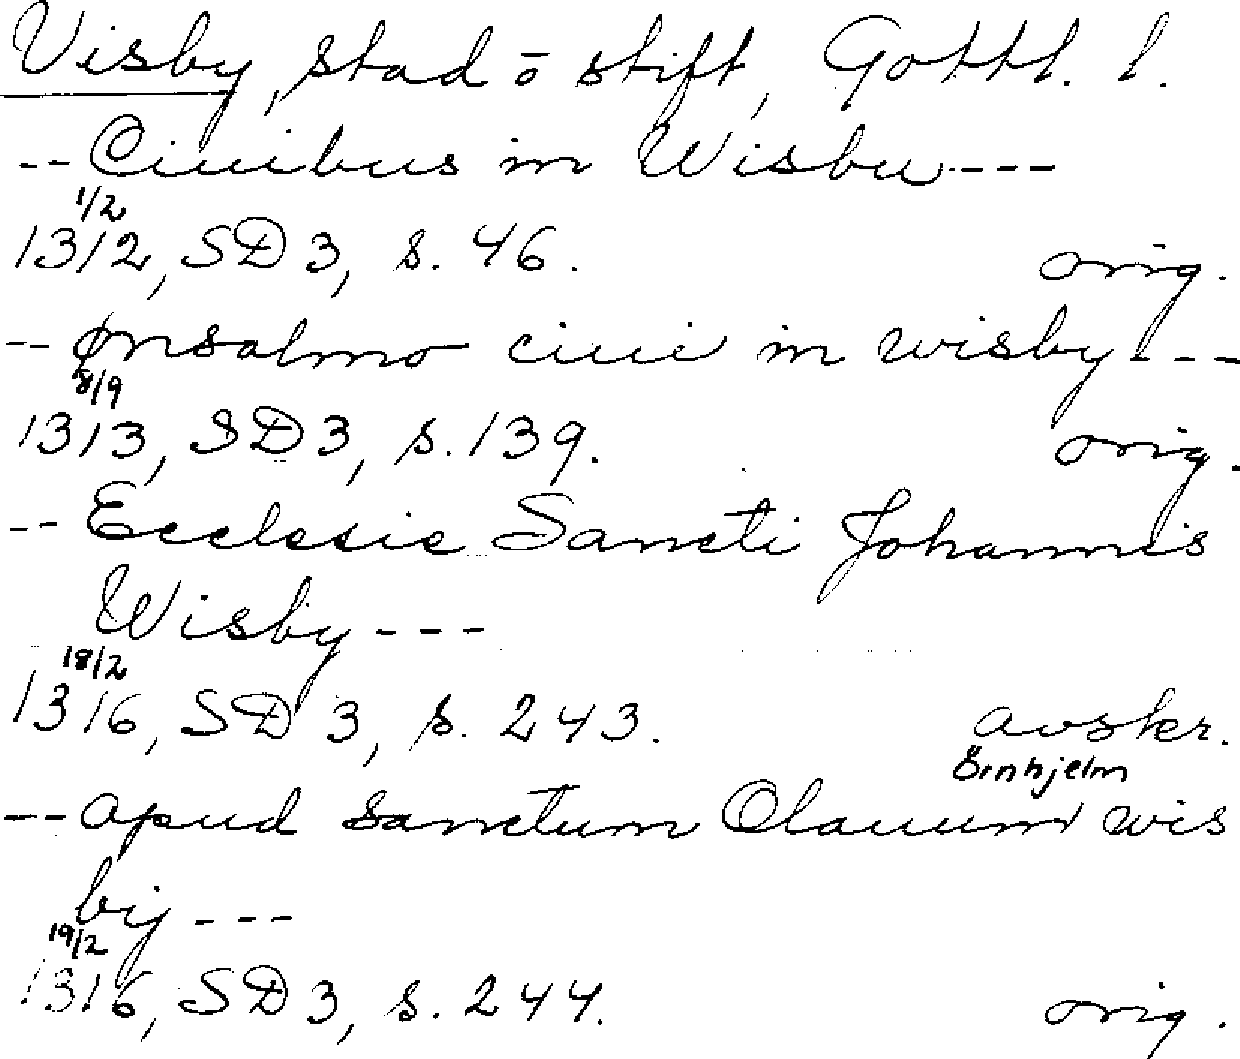 Visby, stad o stift, Gottl. l.
-- Ciuibus in Wisbu ---
1/2
1312, SD 3, s. 46. orig.
-- ansalmo ciui in wisby ---
8/9
1313, SD 3, s. 139. orig.
-- Ecclesie Sancti Johannis
Wisby ---
18/2
1316, SD 3, s. 243. avskr.
Örnhjelm
-- apud sanctum Olauum wis
bij ---
19/2
1316, SD 3, s. 244. orig.